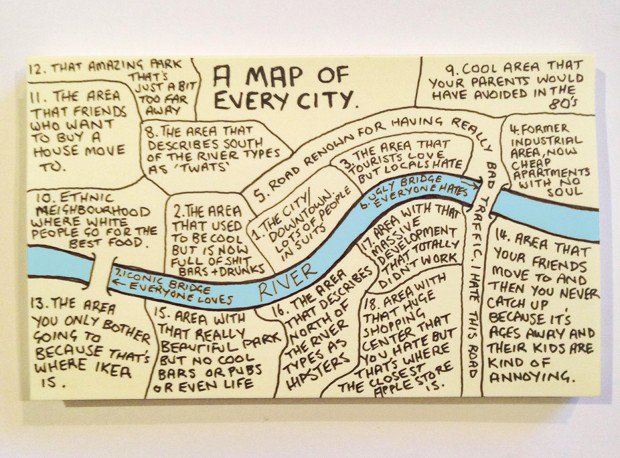 A MAP OF
EVERY CITY.
12. THAT AMAZING PARK
THAT'S
JUST A BIT
TOO FAR
AWAY
9. COOL AREA THAT
YOUR PARENTS WOULD
HAVE AVOIDED IN THE
80's
11. THE AREA
THAT FRIENDS
WHO WANT
TO BUY A
HOUSE MOVE
TO.
8. THE AREA THAT
DESCRIBES SOUTH
OF THE RIVER TYPES
AS 'TWATS'
5. ROAD RENOWN FOR HAVING REALLY BAD TRAFFIC, I HATE THIS ROAD
3. THE AREA THAT
TOURISTS LOVE
BUT LOCALS HATE
4. FORMER
INDUSTRIAL
AREA, NOW
CHEAP
APARTMENTS
WITH NO
SOUL
10. ETHNIC
NEIGHBOURHOOD
WHERE WHITE
PEOPLE GO FOR THE
BEST FOOD.
2. THE AREA
THAT USED
TO BE COOL
BUT IS NOW
FULL OF SHIT
BARS + DRUNKS
1. THE CITY/
DOWNTOWN.
LOTS OF PEOPLE
IN SUITS
6. UGLY BRIDGE
EVERYONE HATES
7. ICONIC BRIDGE
EVERYONE LOVES
RIVER
17. AREA WITH THAT
MASSIVE
DEVELOPMENT
THAT TOTALLY
DIDN'T WORK
14. AREA THAT
YOUR FRIENDS
MOVE TO AND
THEN YOU NEVER
CATCH UP
BECAUSE IT'S
AGES AWAY AND
THEIR KIDS ARE
KIND OF
ANNOYING.
13. THE AREA
YOU ONLY BOTHER
GOING TO
BECAUSE THAT'S
WHERE IKEA
IS.
15. AREA WITH
THAT REALLY
BEAUTIFUL PARK
BUT NO COOL
BARS OR PUBS
OR EVEN LIFE
16. THE AREA
THAT DESCRIBES
NORTH OF
THE RIVER
TYPES AS
HIPSTERS
18. AREA WITH
THAT HUGE
SHOPPING
CENTER THAT
YOU HATE BUT
THAT'S WHERE
THE CLOSEST
APPLE STORE
IS.